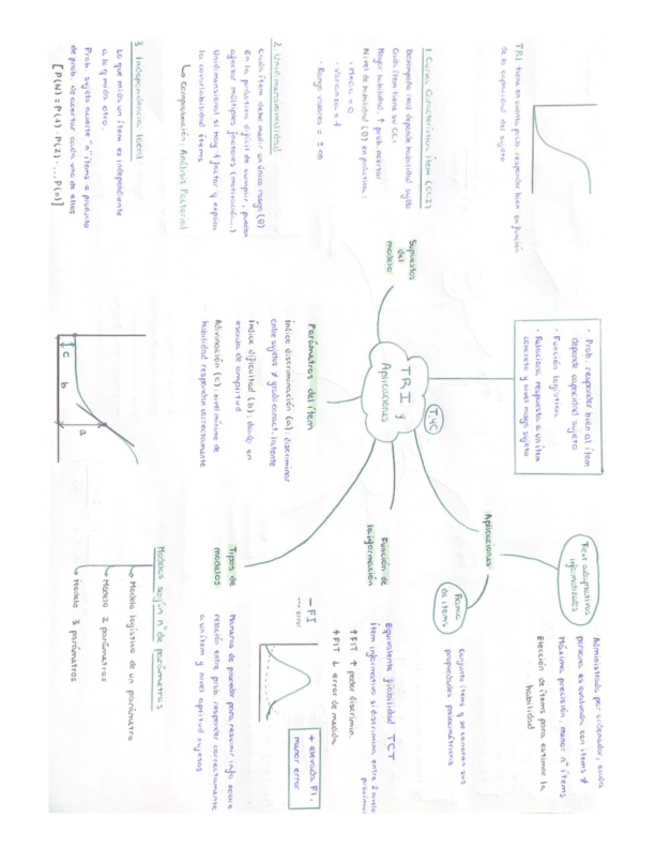 TRI y
Aplicaciones
T.4C
· Prob. responder bien al ítem
depende capacidad sujeto
· Función logística
· Relaciona respuesta a un ítem
concreto y nivel rasgo sujeto
TRI tiene en cuenta prob. responder bien en función
de la capacidad del sujeto
Supuestos
del
modelo
1. Curva Característica ítem (CCI)
Desempeño real depende habilidad sujeto
Cada ítem tiene su CCI
Mayor habilidad ↑ prob. acertar
Nivel de habilidad (θ) en práctica:
· Media = 0
· Varianza = 1
· Rango valores = ± ∞
2. Unidimensionalidad
Cada ítem debe medir un único rasgo (θ)
En la práctica difícil de cumplir, pueden
afectar múltiples factores (motivación...)
Unidimensional si hay 1 factor q explica
la covariabilidad ítems
↳ Comprobación: Análisis Factorial
3. Independencia local
Lo que mida un ítem es independiente
a lo q mida otro.
Prob. sujeto acierte "n" ítems = producto
de prob. de acertar cada uno de ellos
[P(N) = P(1) · P(2) · ... P(n)]
Parámetros del ítem
Índice discriminación (a): discriminar
entre sujetos ≠ grado caract. latente
Índice dificultad (b): dado en
escala de amplitud
Adivinación (c): nivel mínimo de
habilidad responden correctamente
c
b
a
Aplicaciones
Test adaptativos
informatizados
Administrado por ordenador, cada
persona es evaluada con ítems ≠
Máxima precisión, menor nº ítems
Elección de ítems para estimar la
habilidad
Banco
de ítems
Conjunto ítems q se conocen sus
propiedades psicométricas
Función de
la información
Equivalente fiabilidad TCT
Ítem informativo si discrimina entre 2 niveles
próximos
↑ FIT ↑ poder discrimin.
↑ FIT ↓ error de medida
— FI
--- error
+ elevada FI,
menor error
Tipos de
modelos
Maneras de proceder para resumir info sobre
relación entre prob. responder correctamente
a un ítem y nivel aptitud sujetos
Modelos según nº de parámetros
↳ Modelo logístico de un parámetro
↳ Modelo 2 parámetros
↳ Modelo 3 parámetros